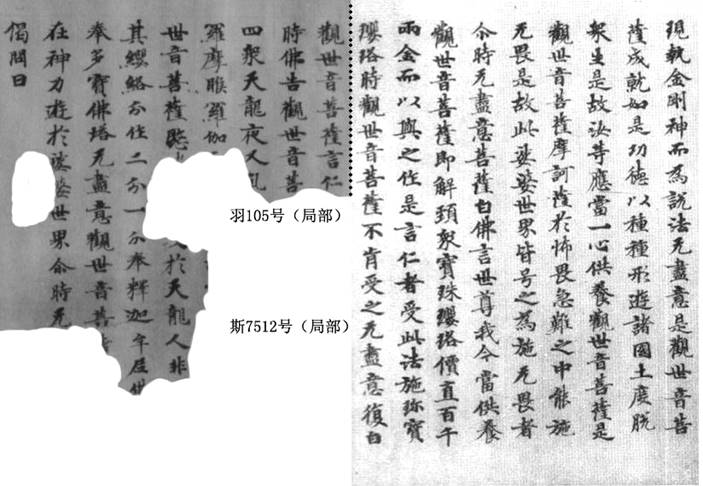 現執金剛神而為說法无盡意是觀世音菩
薩成就如是功德以種種形遊諸國土度脫
眾生是故汝等應當一心供養觀世音菩薩是
觀世音菩薩摩訶薩於怖畏急難之中能施
无畏是故此娑婆世界皆号之為施无畏者
尒時无盡意菩薩白佛言世尊我今當供養
觀世音菩薩即解頸眾寶珠瓔珞價直百千
兩金而以與之作是言仁者受此法施珎寶
瓔珞時觀世音菩薩不肯受之无盡意復白
觀世音菩薩言仁
時佛告觀世音菩
四眾天龍夜叉
羅摩睺羅伽
世音菩薩愍 於天龍人非
其瓔珞尒作二尒一尒奉釋迦牟尼
奉多寶佛塔无盡意觀世音菩
在神力遊於娑婆世界尒時无
偈問曰
羽105号（局部）
斯7512号（局部）